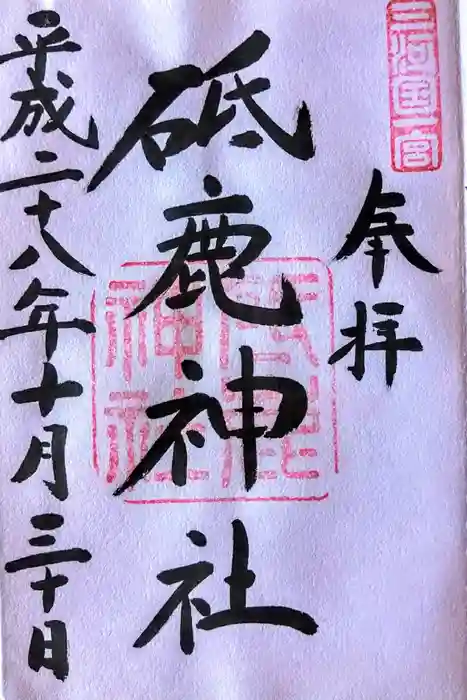 三河國一宮
奉拝
砥鹿神社
砥鹿神社
平成二十八年十月三十日